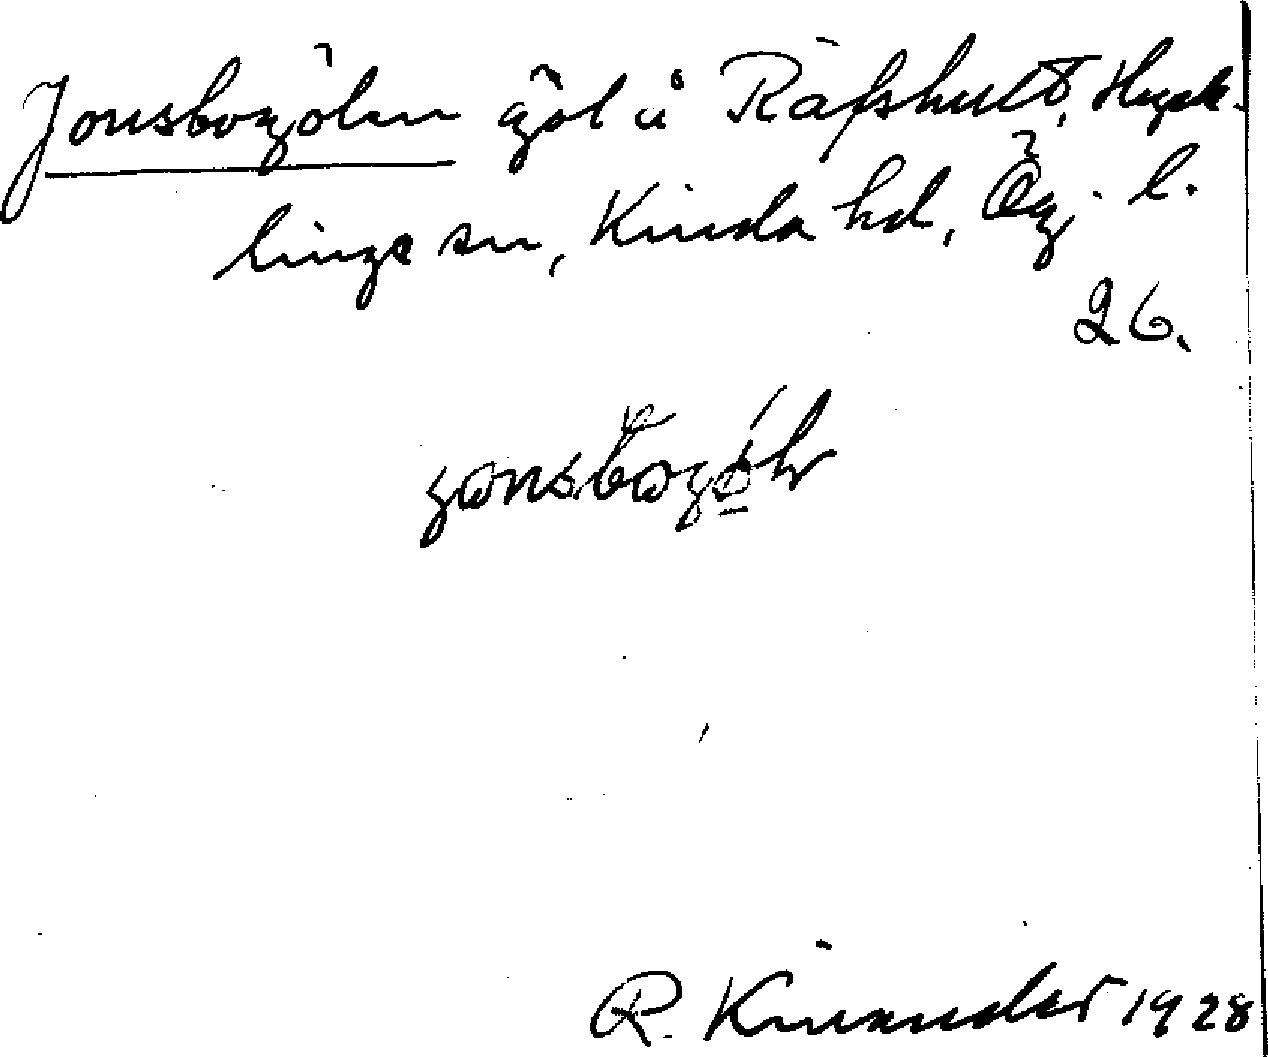 Jonsbogölen göl å Räfshult, Hyck-
linge sn, Kinda hd, Ög. l.
26.
R. Kinander 1928